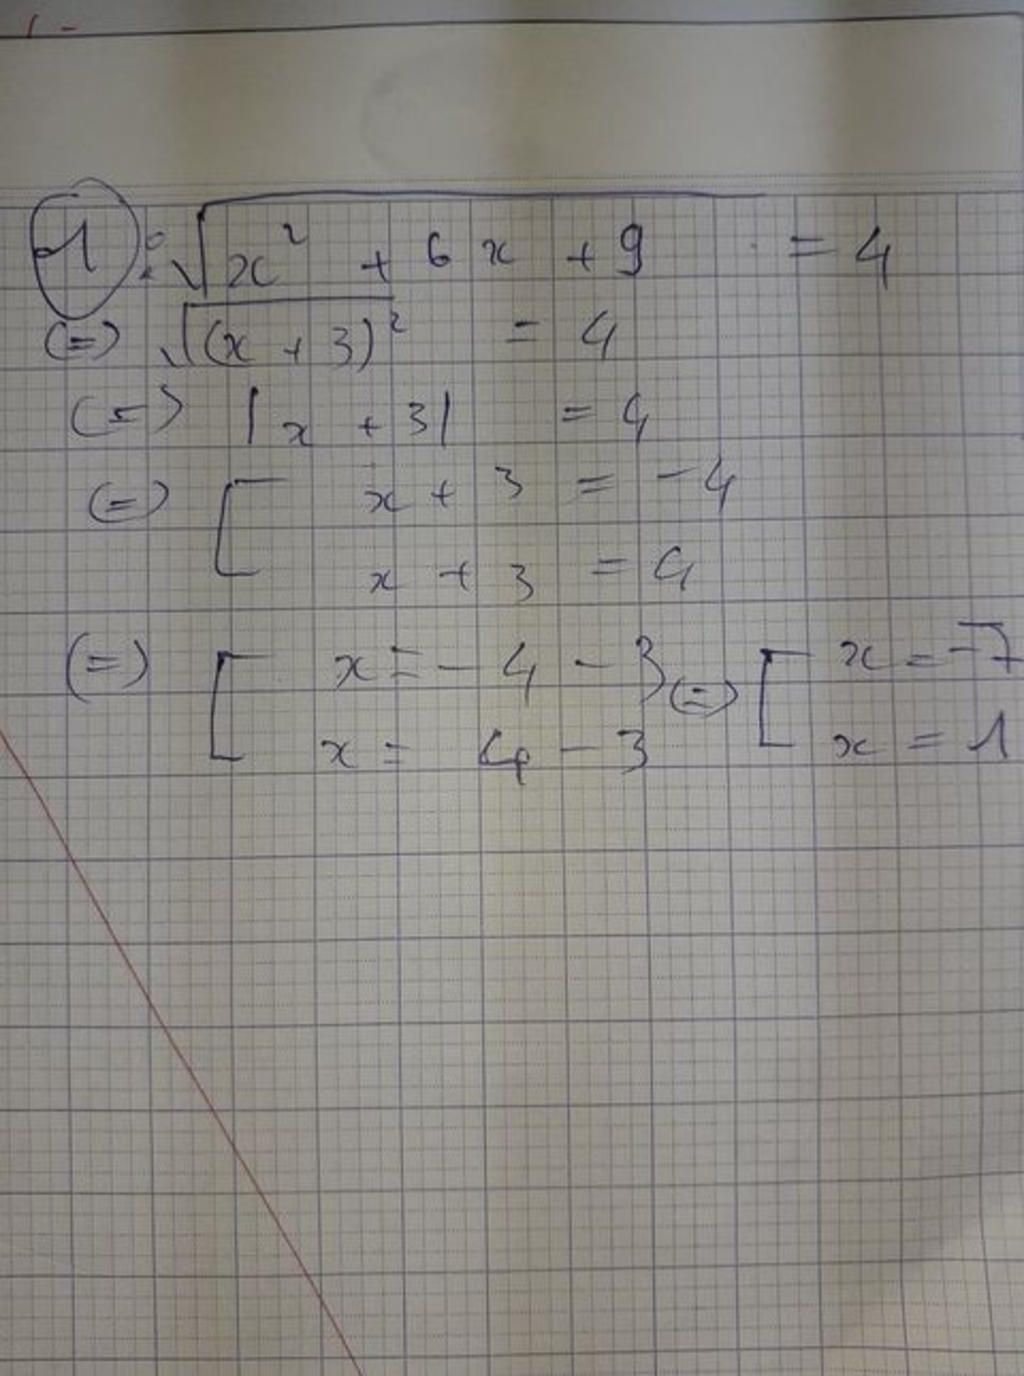 1 : √(x² + 6x + 9) = 4
(=) √((x + 3)²) = 4
(=) |x + 3| = 4
(=) [ x + 3 = -4
x + 3 = 4
(=) [ x = -4 - 3 (=) [ x = -7
x = 4 - 3 x = 1